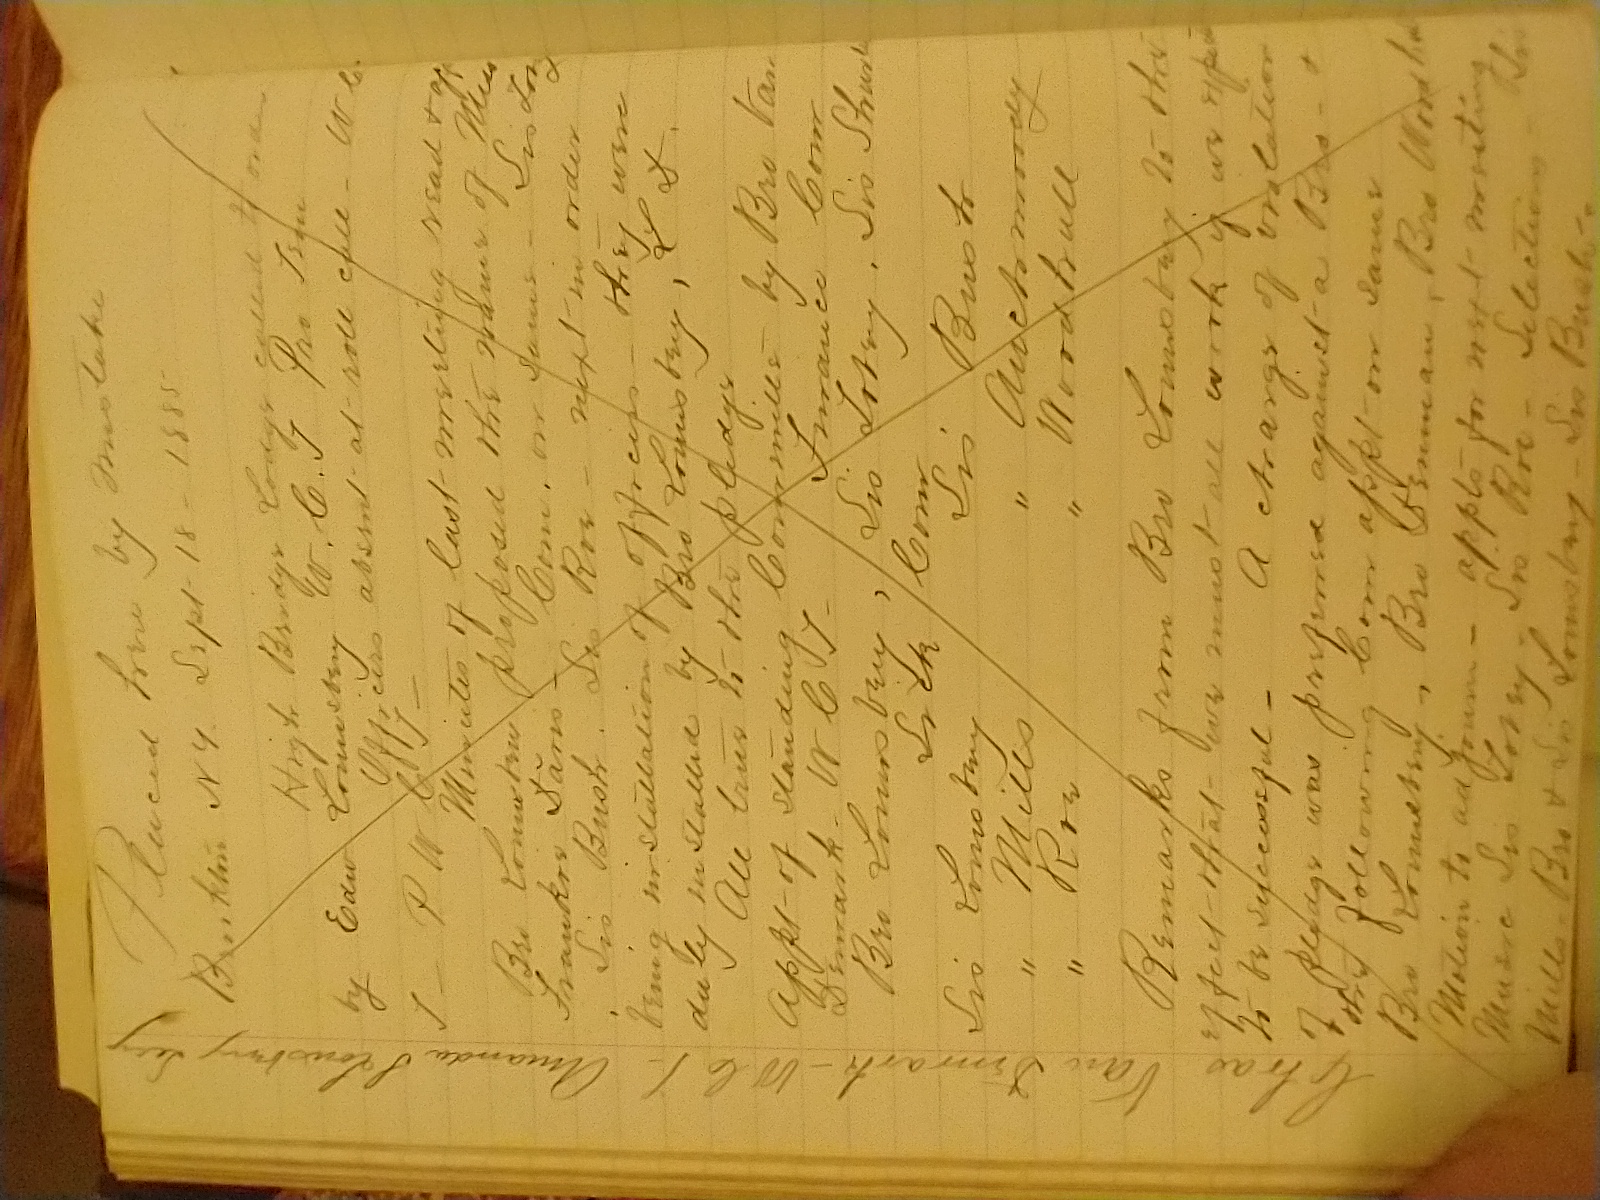 Placed here by mistake
N Y. Sept 18 - 1885
High Bridge Lodge called to order
by Edw Lounsbery W. C. T Pro Tem
Officers absent at roll call - W C.
T - P W C T -
Minutes of last meeting read +
Bro Lounsbery proposed the name of Miss
Frankie Davis - Com. on same - Sis
, Sis Bush. Sis Roe - next in order
being installation of officers - they were
duly installed by Bro Lounsbery, L D.
All true to the pledge
Appt of standing Committe by Bro Van
Demark - W C T - Finance Com
Bro Lounsbery, Sis Tobey. Sis
Sick Com
Sis Lounsbery Sis Bush
" Mills " Auchmoody
" Roe " Woodhull
Remarks from Bro Lounsbery to the
effect that we must all work if we expect
to be successful - A charge of violation
of pledge was preferred against a Bro - +
the following Com appt on same
Bro Lounsbery, Bro Denman, Bro
Motion to adjourn - appts for next meeting
Music Sis Tobey - Sis Roe - Selections - Sis
Mills - Bro + Sis Lounsbery - Sis Bush -
Chas Van Demark - W C T - Amanda S Lounsbery Secy